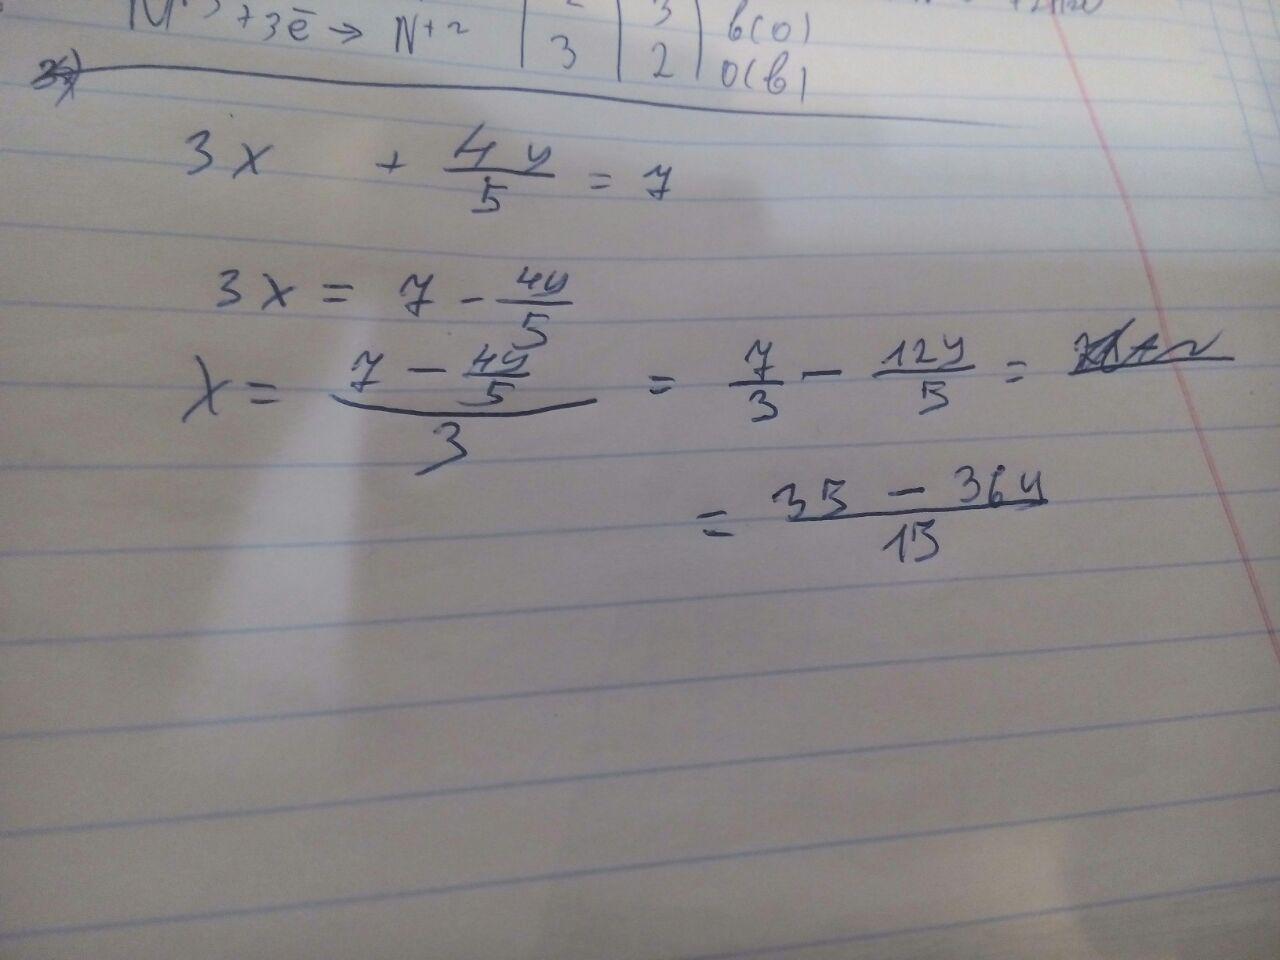 +3ē → N+2 | 3 | 2 | в(о)
о(в)
3x + 4y/5 = 7
3x = 7 - 4y/5
x = (7 - 4y/5)/3 = 7/3 - 12y/5 =
= (35 - 36y)/15